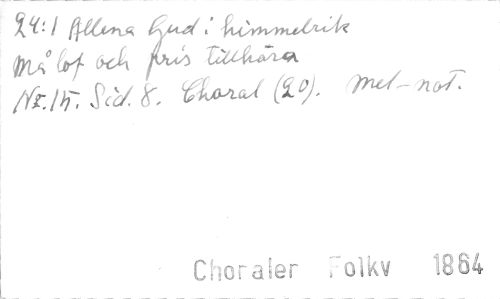 24:1 Allena Gud i himmelrik
må lof och pris tillhöra
Nr. 15. Sid. 8. Choral (20). Mel-not.
Choraler Folkv 1864